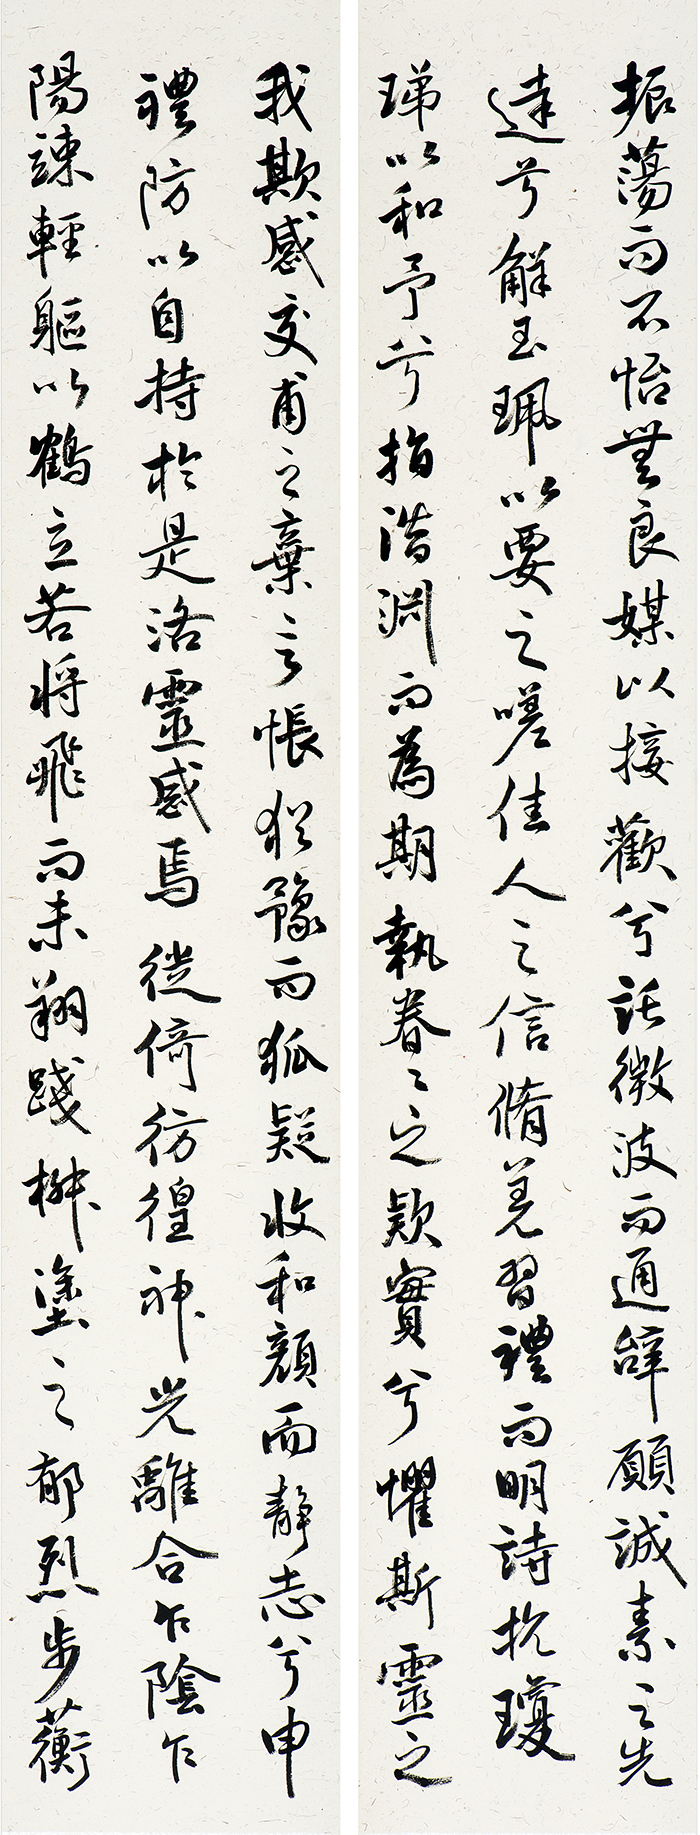 振蕩而不怡無良媒以接歡兮託微波而通辭願誠素之先
達兮解玉珮以要之嗟佳人之信脩羌習禮而明詩抗瓊
珶以和予兮指潛淵而為期執眷〻之款實兮懼斯靈之
我欺感交甫之棄言悵猶豫而狐疑收和顏而靜志兮申
禮防以自持於是洛靈感焉徙倚彷徨神光離合乍陰乍
陽竦輕軀以鶴立若將飛而未翔踐椒塗之郁烈步蘅